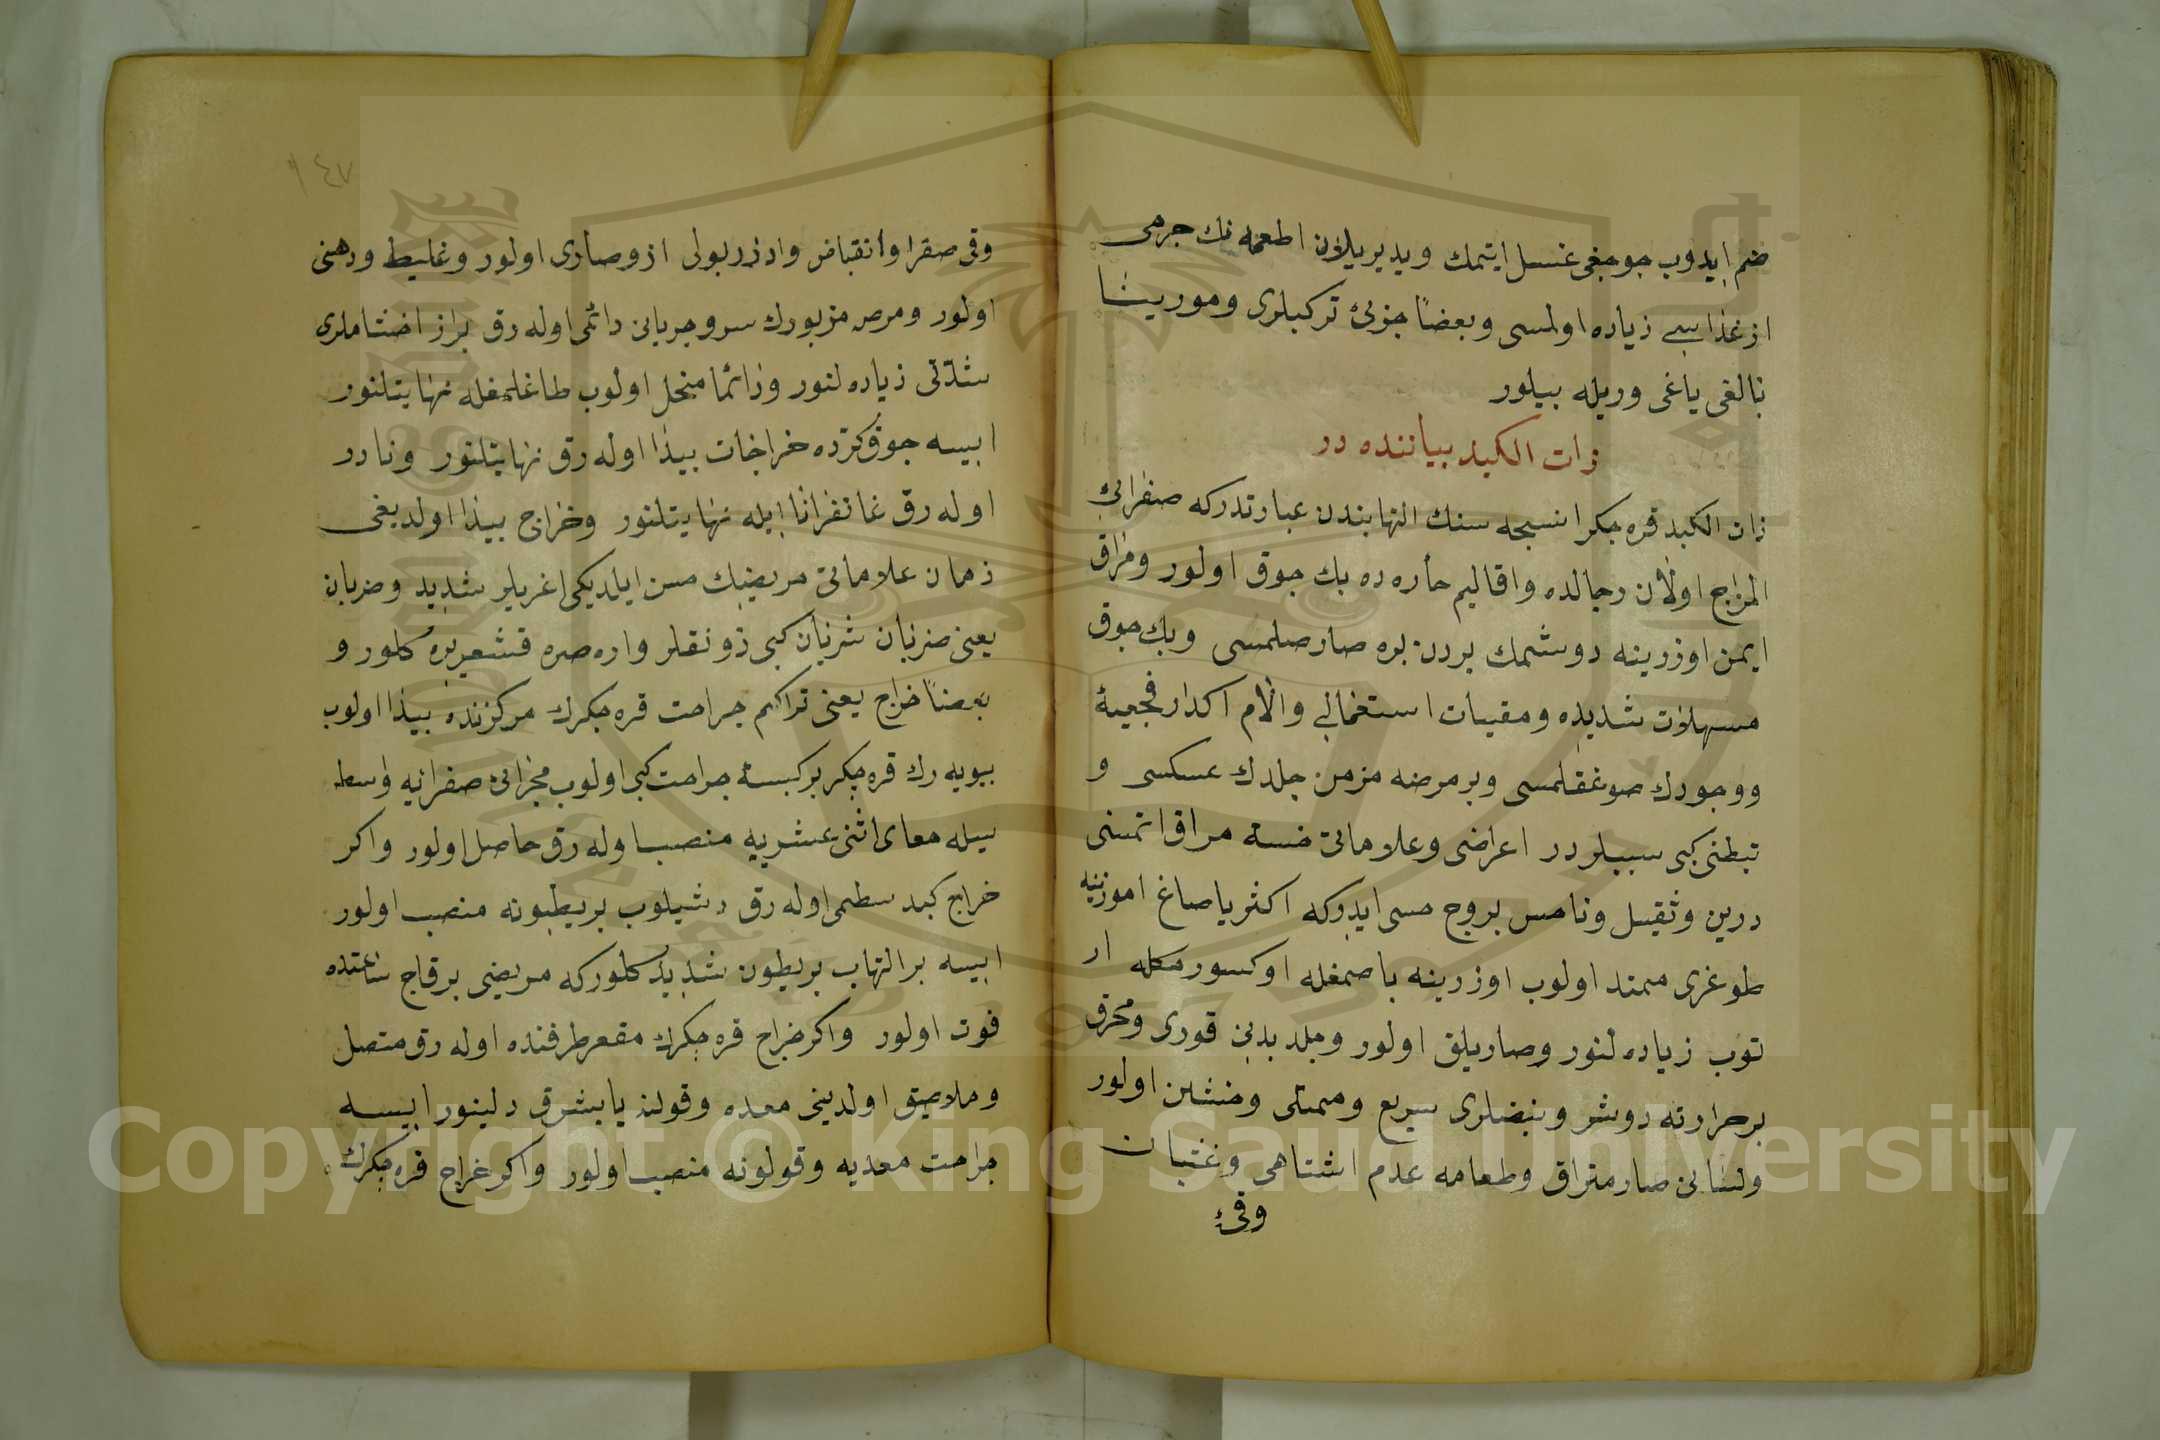 ضم ایدوب جوجغی غسل ایتمك ویدیریلان اطعمه نك جرمی
از غذاسی زیاده اولمسی وبعضاً جزئی ترکیبلری ومورینا
بالغی یاغی وریله بیلور
ذات الکبد بیاننده در
ذات الکبد قره جکر انسجه سنك التهابندن عبارتدرکه صفرائی
المزاج اولان رجالده واقالیم حاره ده بك جوق اولور ومراق
ایمن اوزرینه دوشمك بردن بره صارصلمسی وبك جوق
مسهلات شدیده ومقیات استعمالی والام اکدار فجیعۀ
ووجودك صوغقلمسی وبر مرضه مزمن جلدك عسکسی و
تبطنی کبی سببلردر اعراضی وعلاماتی خسته مراق اتمنی
درین وثقیل وناخس بروجع حسی ایدرکه اکثریا صاغ اموزینه
طوغری ممتد اولوب اوزرینه باصمغله اوکسورمکله ار
توب زیاده لنور وصاریلق اولور وجلد بدنی قوری ومحرق
برحرارته دوشر ونبضلری سریع وممتلی وخشن اولور
ولسانی صارمتراق وطعامه عدم اشتاهی وغثیان
وقیء
١٤٧
وقی صفرا وانقباض وادرار بولی از وصاری اولور وغلیظ ودهنی
اولور ومرض مزبورك سیر وجریانی دائمی اوله رق براز اخشاملری
شدتی زیاده لنور ودائما منحل اولوب طاغلمغله نهایتلنور
ایسه جوق کرّه ده خراجات بیدا اوله رق نهایتلنور ونادر
اوله رق غانغرانا ایله نهایتلنور وخراج بیدا اولدیغی
زمان علاماتی مریضك حس ایلدیکی اغریلر شدید وضربان
یعنی ضربان شریان کبی زونقلر واره صره قشعریره کلور و
بعضاً خراج یعنی تراکم جراحت قره جکرك مرکزنده بیدا اولوب
بیویه رك قره جکر برکسه جراحت کبی اولوب مجرائ صفرائیه واسطه
سیله معای اثنی عشریه منصب اوله رق حاصل اولور واکر
خراج کبد سطحی اوله رق دشیلوب بریطونه منصب اولور
ایسه بر التهاب بریطون شدید کلورکه مریضی برقاج ساعتده
فوت اولور واکر خراج قره جکرك مقعر طرفنده اوله رق متصل
وملاصق اولدیغی معده وقولنه یابشرق دلینور ایسه
جراحت معدیه وقولونه منصب اولور واکر خراج قره جکرك
Copyright © King Saud University